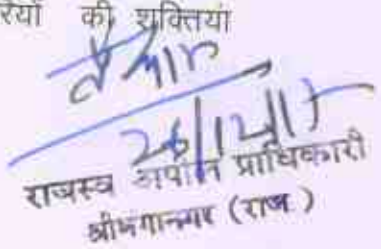 की शक्तियां
26/12/17
राजस्व अपील प्राधिकारी
श्रीगंगानगर (राज.)